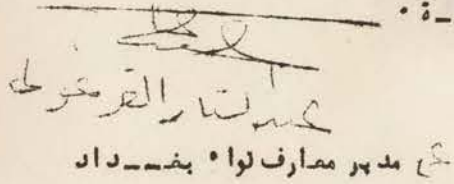 ـة .
عبدالستار القرغولي
ع/ مدير معارف لواء بغــداد